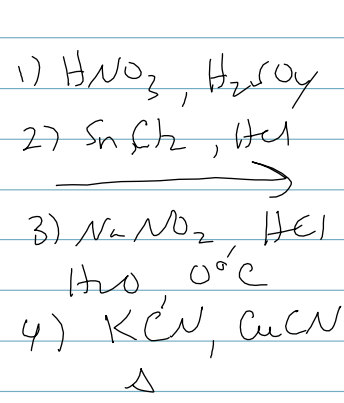 1) HNO3, H2SO4
2) SnCl2, HCl
3) NaNO2, HCl
H2O, 0°C
4) KCN, CuCN
Δ